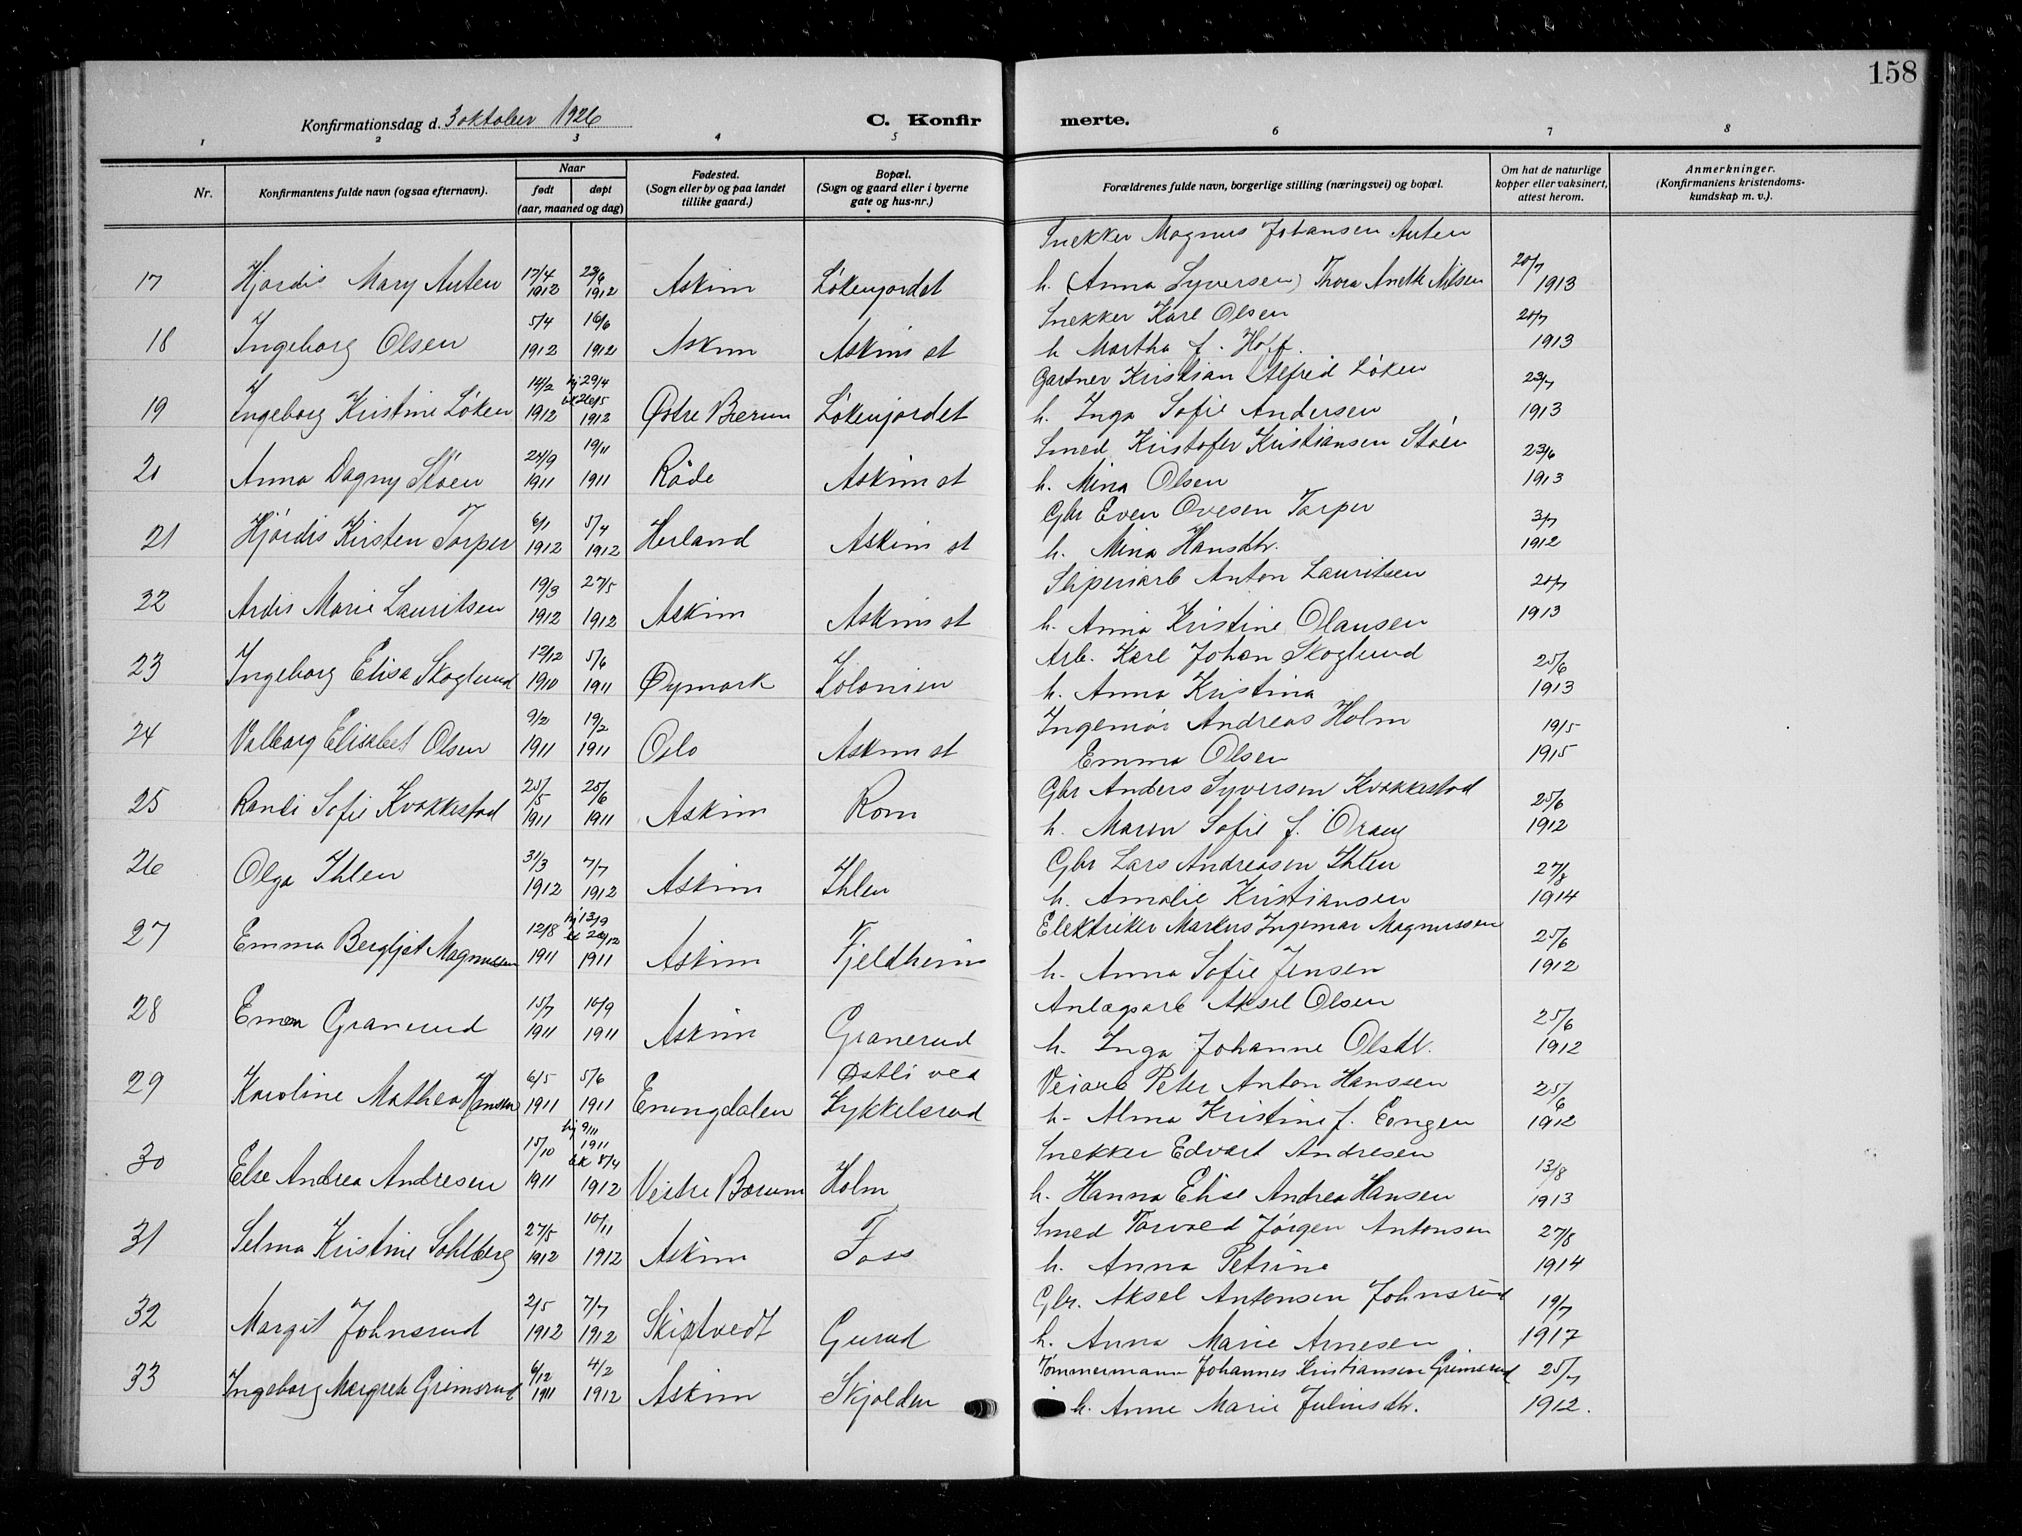 158
Konfirmationsdag d. 3 oktober 1926 C. Konfirmerte.
1 2 3 4 5 6 7 8
Nr. Konfirmantens fulde navn (ogsaa efternavn). Naar født døpt (aar, maaned og dag) Fødested. (Sogn eller by og paa landet tillike gaard.) Bopæl. (Sogn og gaard eller i byerne gate og hus-nr.) Forældrenes fulde navn, borgerlige stilling (næringsvei) og bopæl. Om hat de naturlige kopper eller vaksinert, attest herom. Anmerkninger. (Konfirmaniens kristendoms-kundskap m. v.).
Snekker Magnus Johansen Auten
17 Hjørdis Mary Auten 17/4 1912 23/6 1912 Askim Løkenjordet h. (Anna Syversen) Thora Aneth Nilsen 20/7 1913
Snekker Karl Olsen
18 Ingeborg Olsen 5/4 1912 16/6 1912 Askim Askim st h Martha f. Hoff. 20/7 1913
Gartner Kristian Alfred Løken
19 Ingeborg Kristine Løken 14/2 1912 hj 29/4 bk 26/5 1912 Østre Bærum Løkenjordet h. Inga Sofie Andersen 23/7 1913
Smed Kristofer Kristiansen Støen
20 Anna Dagny Støen 24/9 1911 19/11 1911 Råde Askim st h. Mina Olsen 23/6 1913
Gbr Even Ovesen Torper
21 Hjørdis Kirsten Torper 6/1 1912 5/4 1912 Herland Askim st h. Mina Hansdtr. 3/7 1912
Sliperiarb Anton Lauritsen
22 Ardis Marie Lauritsen 19/3 1912 27/5 1912 Askim Askim st h. Anna Kristine Olausen 20/7 1913
Arb. Karl Johan Skoglund
23 Ingeborg Elisa Skoglund 12/12 1910 5/6 1911 Øymark Kolonien h. Anna Kristina 25/6 1913
Ingeniør Andreas Holm
24 Valborg Elisabet Olsen 9/2 1911 19/2 1911 Oslo Askim st Emma Olsen 19/5 1915
Gbr Anders Syversen Kvakkestad
25 Randi Sofie Kvakkestad 25/5 1911 25/6 1911 Askim Rom h. Maren Sofie f. 25/6 1912
Gbr Lars Andreasen Ihlen
26 Olga Ihlen 31/3 1912 7/7 1912 Askim Ihlen h. Amalie Kristiansen 27/8 1914
Elektriker Markus Ingemar Magnussen
27 Emma Bergljot Magnussen 12/8 1911 hj 13/9 bk 26/12 1911 Askim Fjeldheim h. Anna Sofie Jensen 25/6 1912
Anlægsarb Aksel Olsen
28 Emma Granerud 15/7 1911 10/9 1911 Askim Granerud h. Inga Johanne Olsdtr. 25/6 1912
Veiarb Peter Anton Hanssen
29 Karoline Mathea Hanssen 6/5 1911 5/6 1911 Enningdalen Østli ved Kykkelsrud h. Alma Kristine f. Engen 25/6 1912
Snekker Edvart Andresen
30 Else Andrea Andresen 15/10 1911 hj 9/11 1911 bk 8/4 1912 Vestre Bærum Holm h. Hanna Elise Andrea Hansen 13/8 1913
Smed Torvald Jørgen Antonsen
31 Selma Kristine Sohlberg 27/5 1912 10/11 1912 Askim Foss h. Anna Petrine 27/8 1914
Gbr. Aksel Antonsen Johnsrud
32 Margit Johnsrud 2/5 1912 7/7 1912 Skiptvedt Gurud h. Anna Marie Arnesen 19/7 1917
Tømmermann Johannes Kristiansen Grimsrud
33 Ingeborg Margrete Grimsrud 6/12 1911 4/2 1912 Askim Skjolden h. Anne Marie Juliusdtr. 25/7 1912.